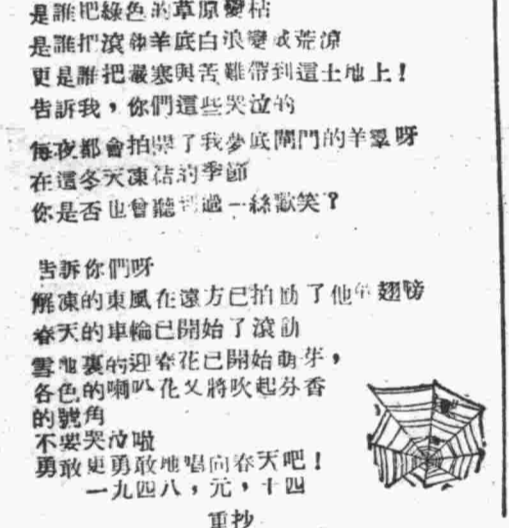 是誰把綠色的草原變枯
是誰把滾的羊底白浪變成荒涼
更是誰把嚴寒與苦難帶到這土地上！
告訴我，你們這些哭泣的
每夜都會拍開了我夢底閘門的羊羣呀
在這冬天凍結的季節
你是否也曾聽到過一絲歡笑？
告訴你們呀
解凍的東風在遠方已拍動了他的翅膀
春天的車輪已開始了滾動
雪地裏的迎春花已開始萌芽，
各色的喇叭花又將吹起芬香
的號角
不要哭泣啦
勇敢更勇敢地唱向春天吧！
一九四八，元，十四
重抄